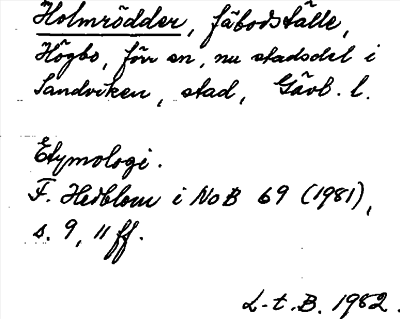 Holmrödder, fäbodställe,
Högbo, förr sn, nu stadsdel i
Sandviken, stad, Gävl. l.
Etymologi.
F. Hedblom i NoB 69 (1981),
s. 9, 11 ff.
L-t. B. 1982.